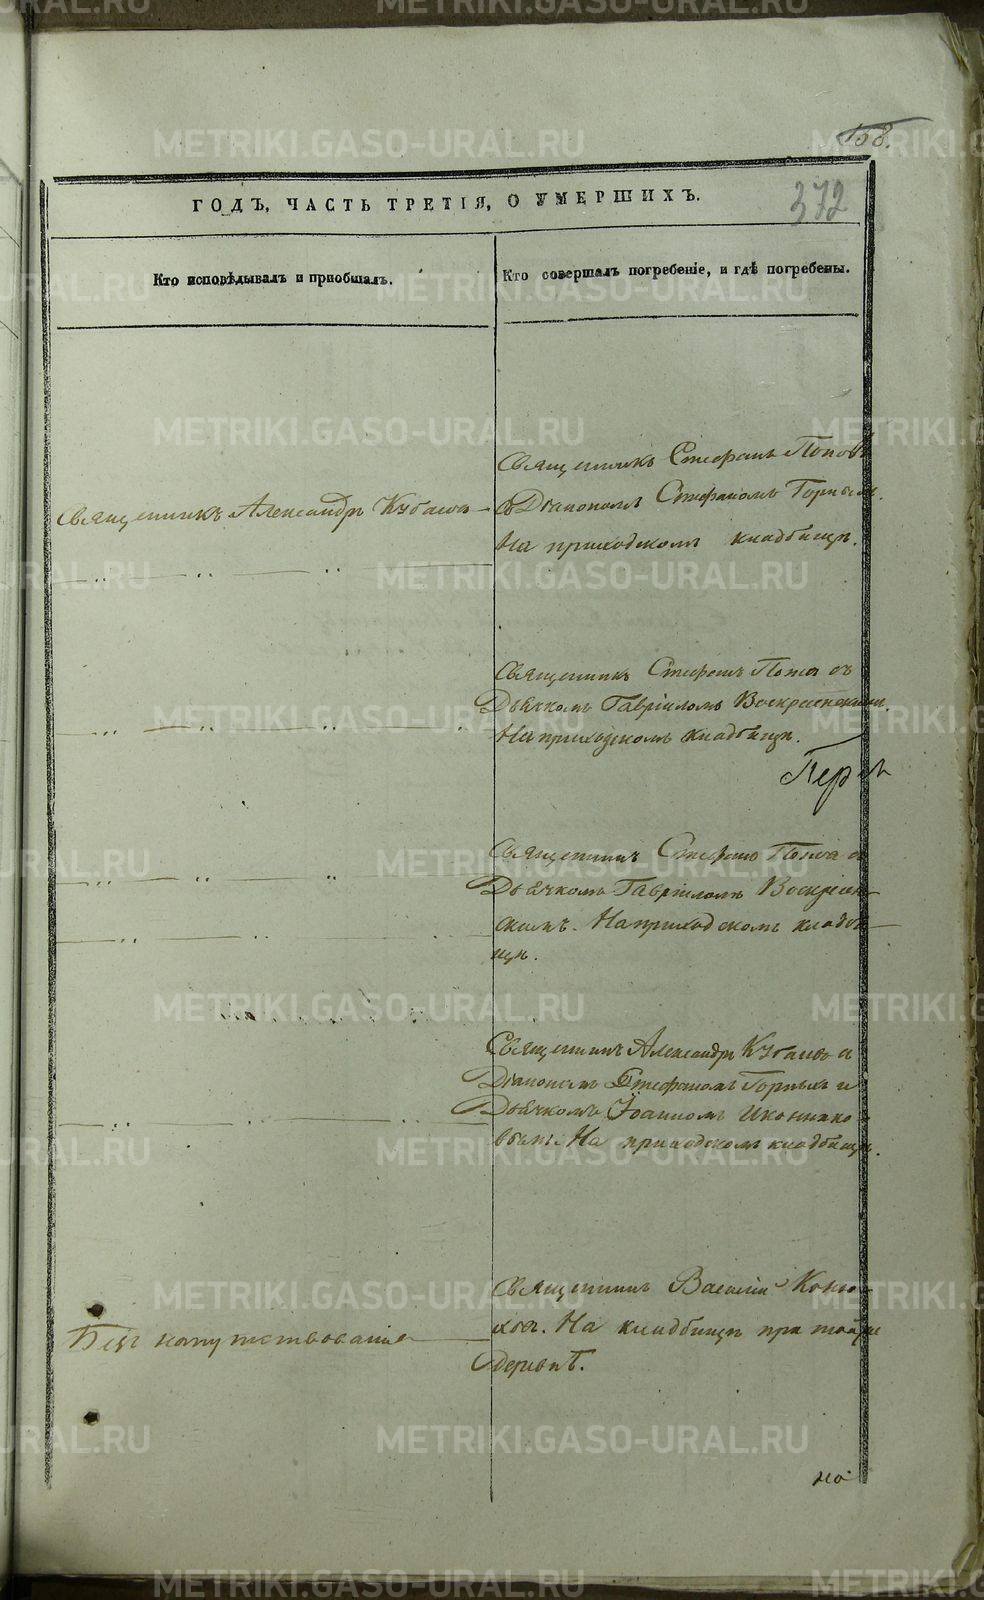 METRIKI.GASO-URAL.RU
158.
372
ГОДЪ, ЧАСТЬ ТРЕТІЯ, О УМЕРШИХЪ.
Кто исповѣдывалъ и пріобщалъ.
Кто совершалъ погребеніе, и гдѣ погребены.
Священникъ Александръ Кубасов
Священникъ Стефанъ Поповъ
съ Діакономъ Стефаномъ Горныхъ.
На приходскомъ кладбищѣ.
Священникъ Стефанъ Поповъ съ
Дьячкомъ Гавріиломъ Воскресенскимъ.
На приходскомъ кладбищѣ.
Священникъ Стефанъ Поповъ съ
Дьячкомъ Гавріиломъ Воскресен-
скимъ. На приходскомъ кладби-
щѣ.
Священникъ Александръ Кубасовъ съ
Діакономъ Стефаномъ Горныхъ и
Дьячкомъ Іоанномъ Иконнико-
вымъ. На приходскомъ кладбищѣ.
Безъ напутствованія
Священникъ Василій Коню-
ховъ. На кладбищѣ при той же
деревнѣ.